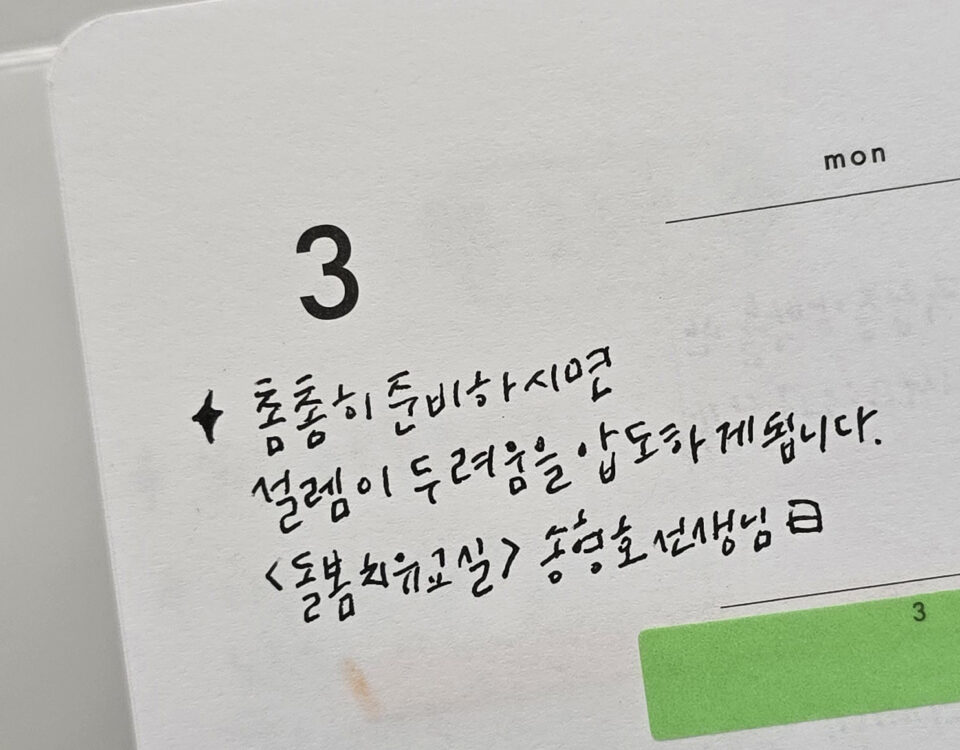 mon
3
촘촘히 준비하시면
설렘이 두려움을 압도하게 됩니다.
<돌봄치유교실> 송형호 선생님 曰
3